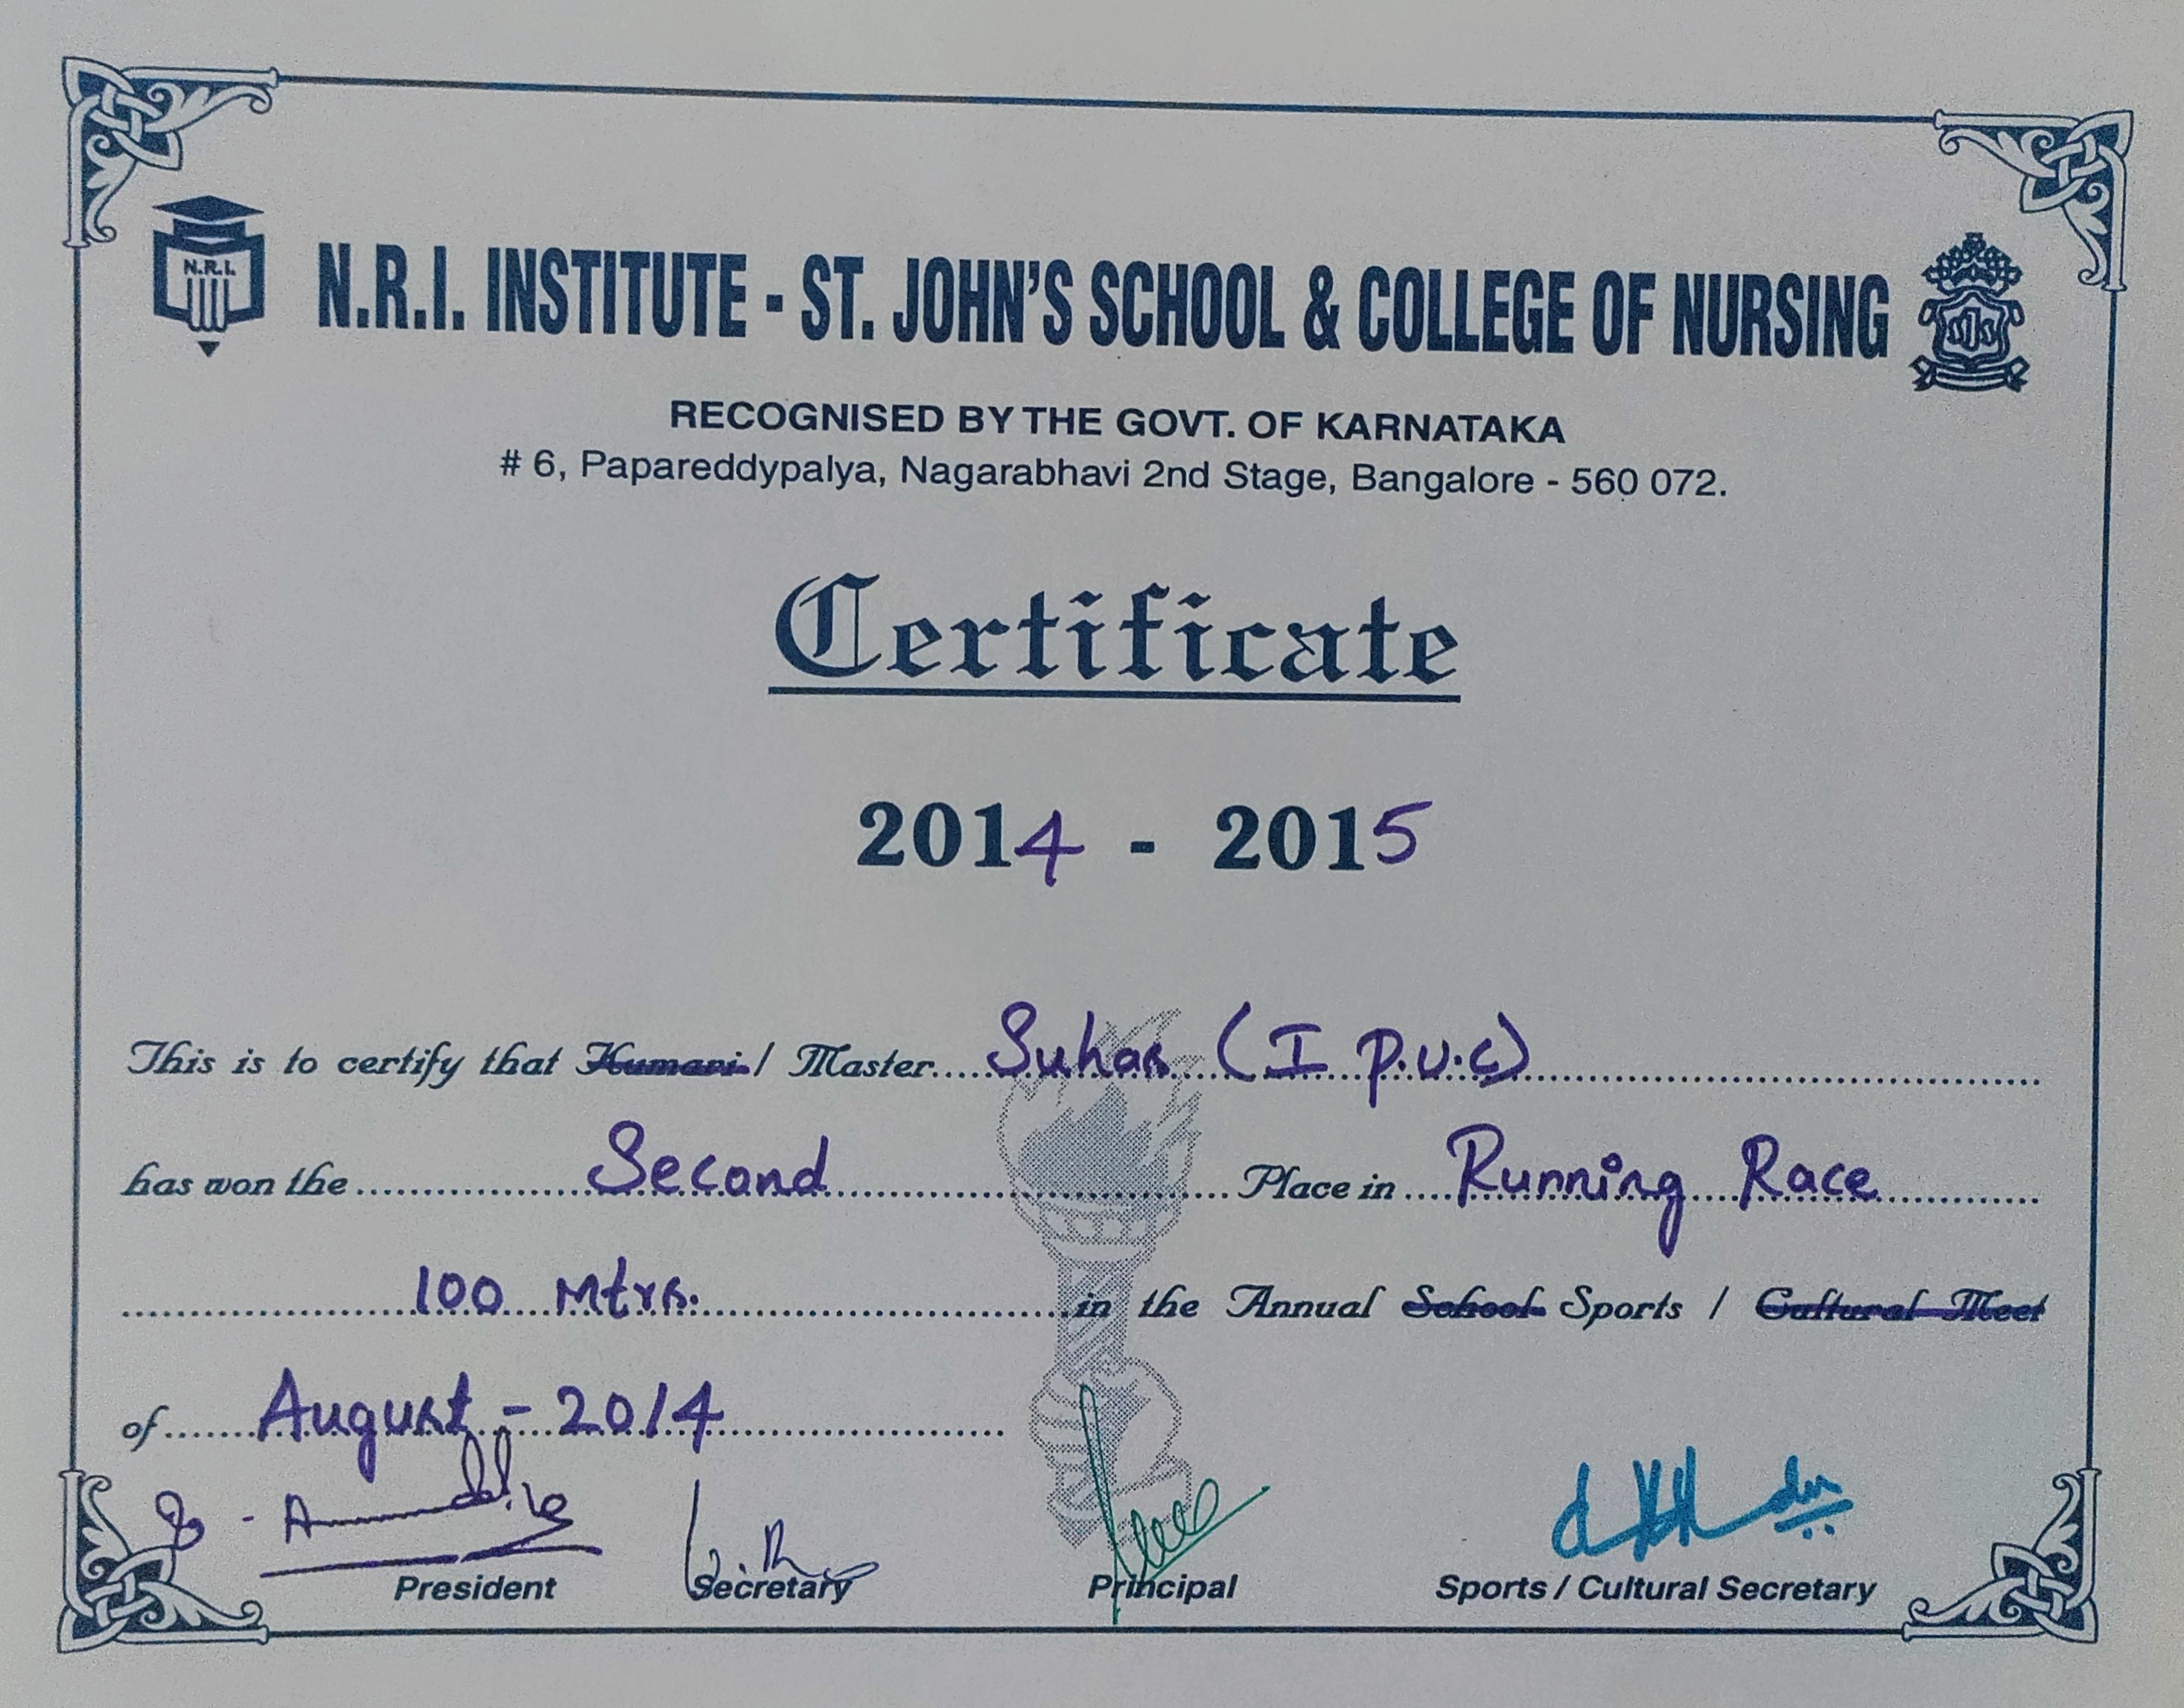 N.R.I.
N.R.I. INSTITUTE - ST. JOHN'S SCHOOL & COLLEGE OF NURSING
SJS
RECOGNISED BY THE GOVT. OF KARNATAKA
# 6, Papareddypalya, Nagarabhavi 2nd Stage, Bangalore - 560 072.
Certificate
2014 - 2015
This is to certify that Kumari / Master Suhas (I P.U.C)
has won the Second Place in Running Race
100 Mtrs. in the Annual School Sports / Cultural Meet
of August - 2014
President Secretary Principal Sports / Cultural Secretary